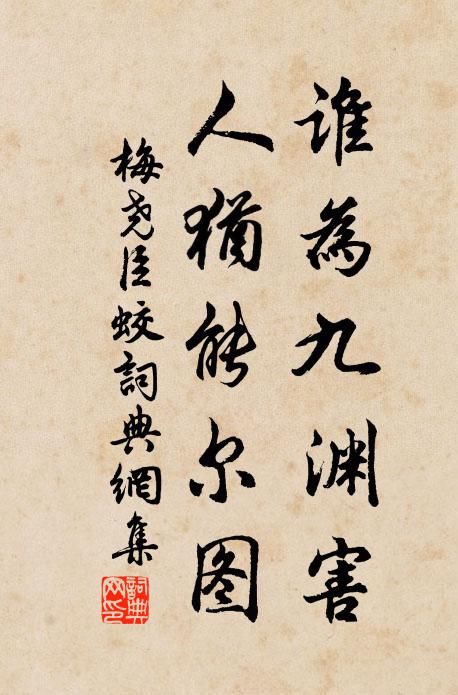 谁為九渊害
人猶能尔图
梅尧臣蛟詞典網集
詞典网印